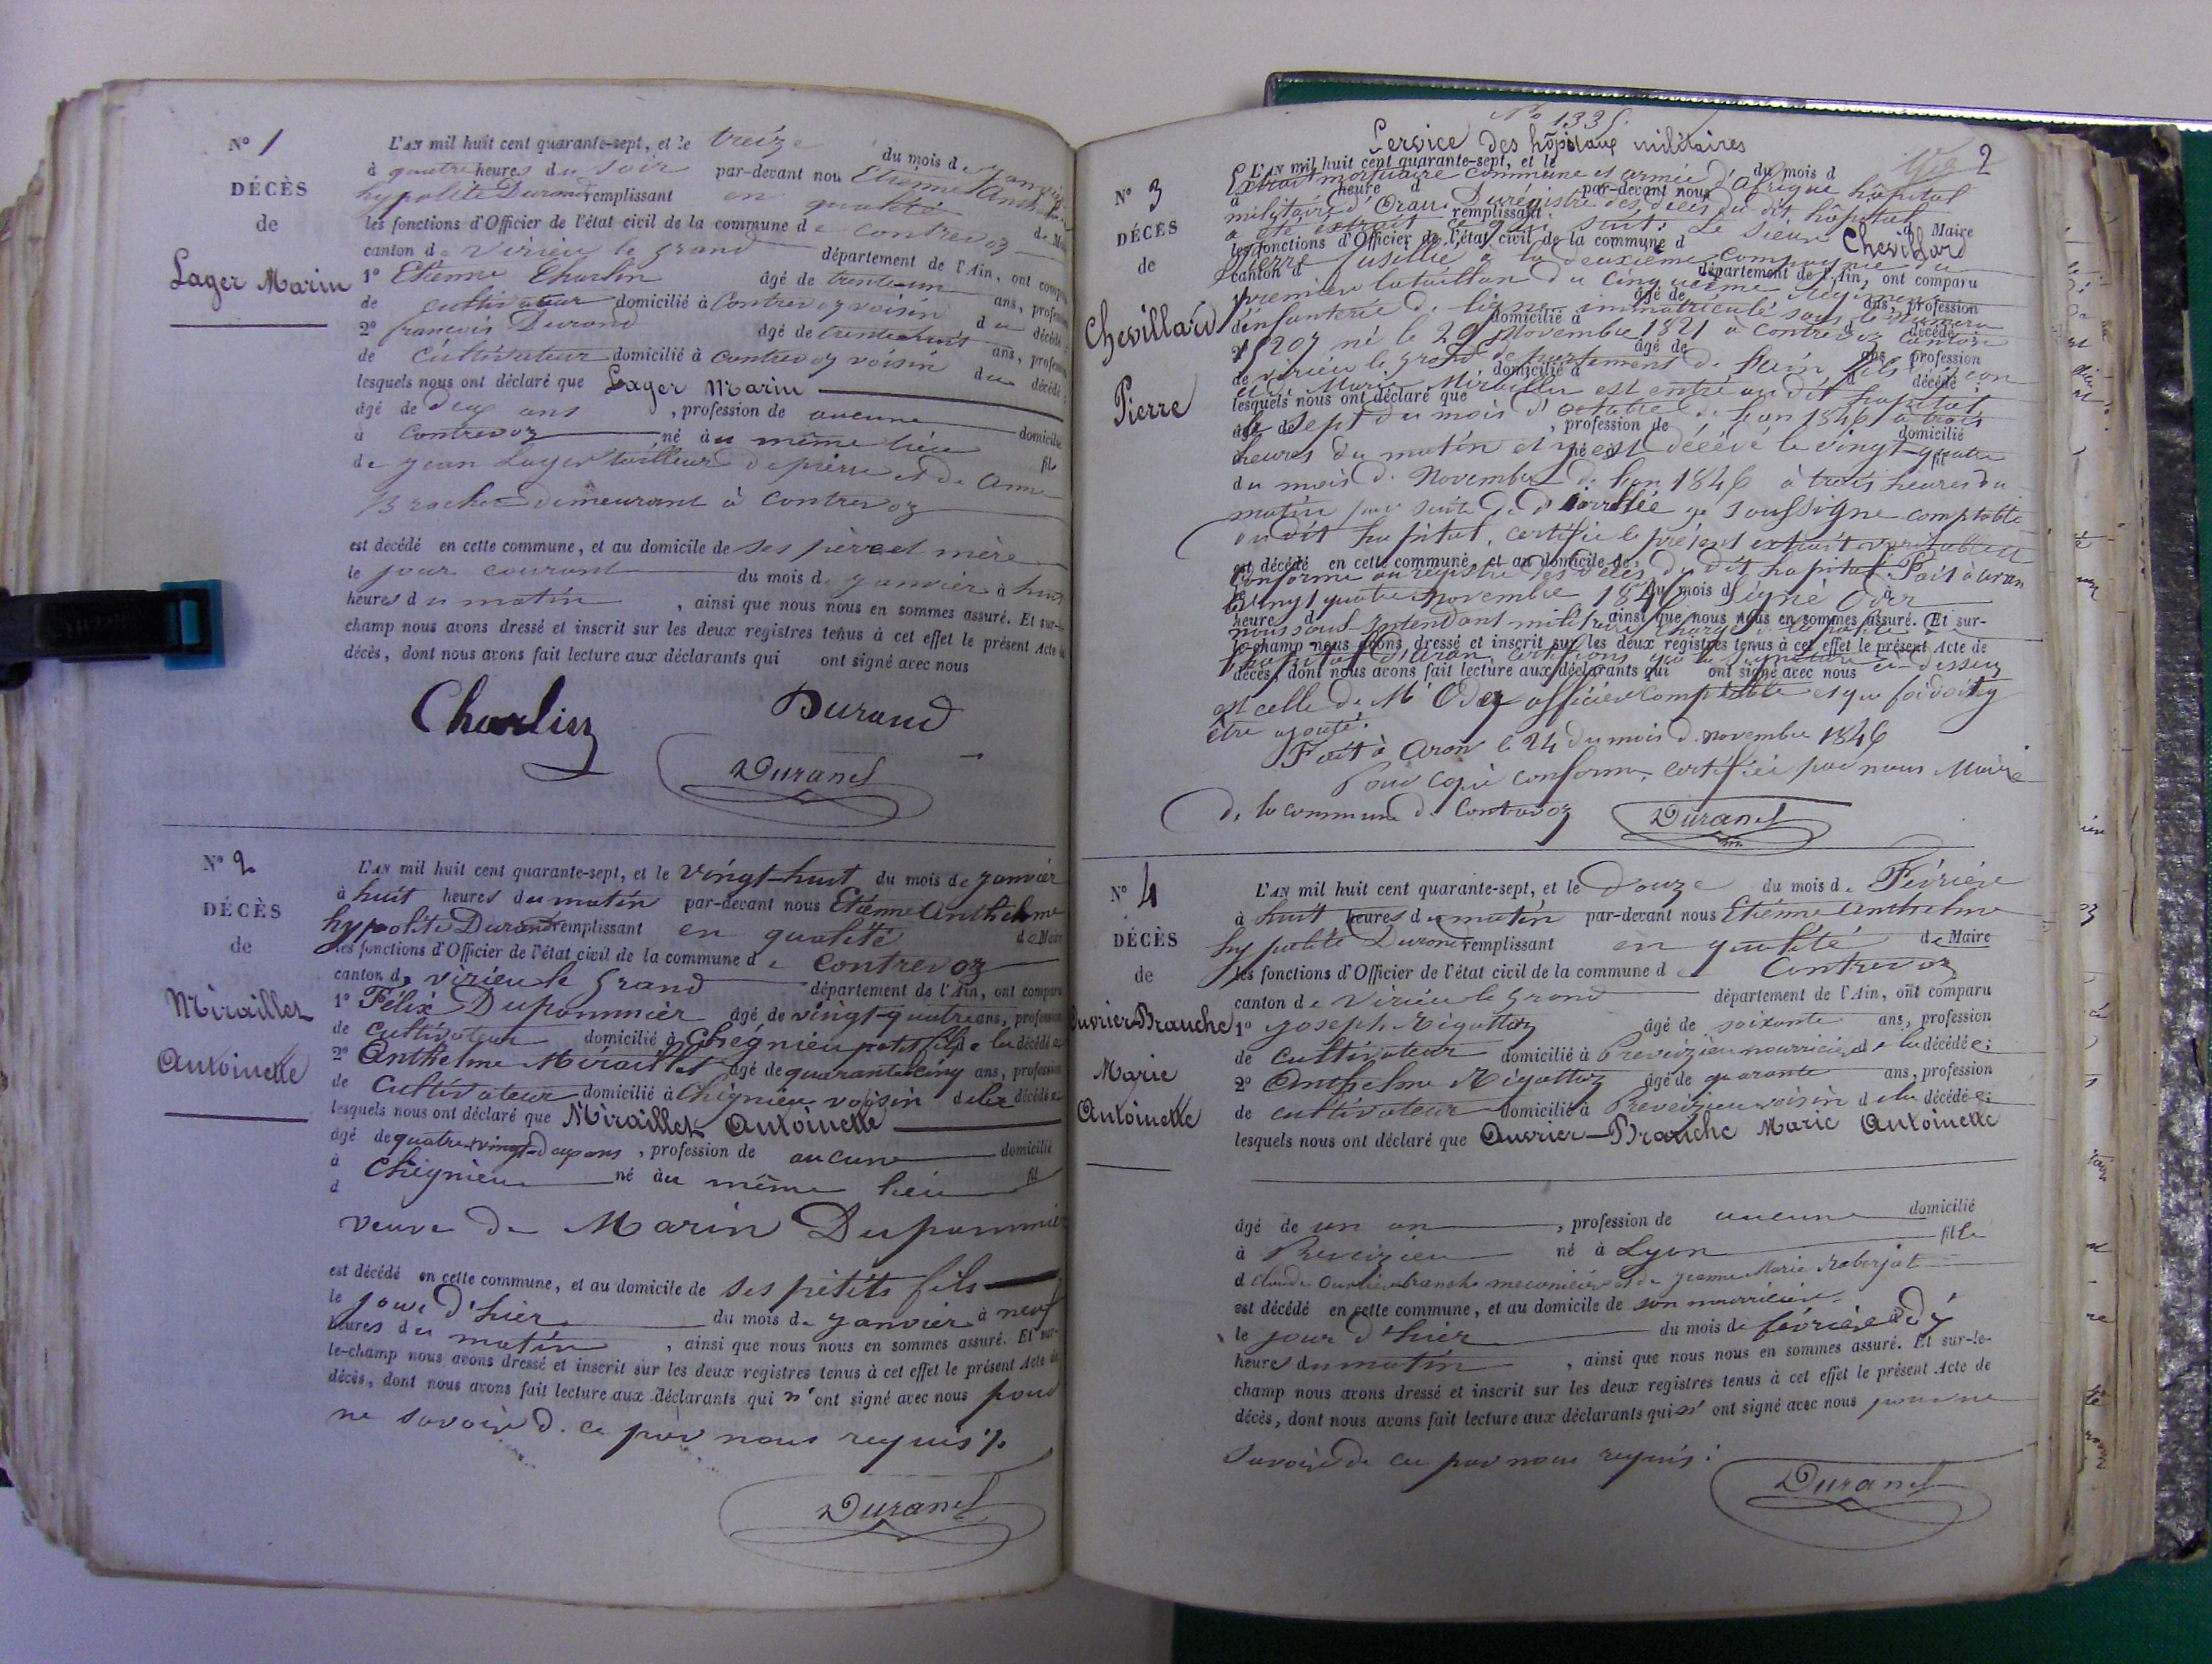 N° 1
DÉCÈS
de
Lager Marin
L'AN mil huit cent quarante-sept, et le treize du mois de janvier
à quatre heures du soir par-devant nous Etienne Anthelme
hypolite Durand remplissant en qualité de Maire
les fonctions d'Officier de l'état civil de la commune de Contrevoz
canton de Virieu le Grand département de l'Ain, ont comparu
1° Etienne Charlin âgé de trente un ans, profession
de cultivateur domicilié à Contrevoz voisin du décédé
2° françois Durand âgé de trente huit ans, profession
de cultivateur domicilié à Contrevoz voisin du décédé
lesquels nous ont déclaré que Lager Marin
âgé de deux ans, profession de aucune domicilié
à Contrevoz né au même lieu fils
de jean Lager tailleur de pierre et de Anne
Brochet demeurant à Contrevoz
est décédé en cette commune, et au domicile de ses père et mère
le jour courant du mois de janvier à huit
heures du matin, ainsi que nous nous en sommes assuré. Et sur-le-
champ nous avons dressé et inscrit sur les deux registres tenus à cet effet le présent Acte de
décès, dont nous avons fait lecture aux déclarants qui ont signé avec nous
Charlin Durand
Durand
N° 2
DÉCÈS
de
Miraillet
Antoinette
L'AN mil huit cent quarante-sept, et le vingt-huit du mois de janvier
à huit heures du matin par-devant nous Etienne Anthelme
hypolite Durand remplissant en qualité de Maire
les fonctions d'Officier de l'état civil de la commune de Contrevoz
canton de virieu le Grand département de l'Ain, ont comparu
1° Félix Dupommier âgé de vingt-quatre ans, profession
de cultivateur domicilié à Cheignieu petit fils de la décédée
2° Anthelme Miraillet âgé de quarante cinq ans, profession
de cultivateur domicilié à Cheignieu voisin de la décédée
lesquels nous ont déclaré que Miraillet Antoinette
âgé de quatre-vingt-deux ans, profession de aucune domicilié
à Cheignieu né au même lieu fil
d
veuve de Marin Dupommier
est décédé en cette commune, et au domicile de ses petits fils
le jour d'hier du mois de janvier à neuf
heures du matin, ainsi que nous nous en sommes assuré. Et sur-
le-champ nous avons dressé et inscrit sur les deux registres tenus à cet effet le présent Acte de
décès, dont nous avons fait lecture aux déclarants qui n'ont signé avec nous pour
ne savoir de ce par nous requis
Durand
N° 1335
2
Service des hôpitaux militaires
N° 3
DÉCÈS
de
Chevillard
Pierre
L'AN mil huit cent quarante-sept, et le du mois d
Extrait mortuaire commune et armée d'afrique hôpital
à heure d par-devant nous
militaire d'Oran. Du régistre des décès du dit hôpital
remplissant d Maire
a été extrait ce qui suit: Le Sieur Chevillard
les fonctions d'Officier de l'état civil de la commune d
Pierre fusillié à la deuxième compagnie du
canton d département de l'Ain, ont comparu
premier bataillon du cinquième Régiment
âgé de ans, profession
d'infanterie de ligne immatriculé sous le numéro
domicilié à d décédé
né le 29 Novembre 1821 à contrevoz canton
âgé de ans profession
de virieu le grand département de l'ain fils de jean
domicilié à d décédé
et de Marie Miraillet est entré au dit hopital
lesquels nous ont déclaré que
le sept du mois d'octobre de l'an 1846 à trois
âgé de, profession de domicilié
heures du matin et y est décédé le vingt-quatre
né à fil
du mois de Novembre de l'an 1846 à trois heures du
matin par suite de diarrhée je soussigné comptable
du dit hopital, certifie le présent extrait véritable et
est décédé en cette commune et au domicile de
conforme au régistre des décès du dit hopital. Fait à oran
le du mois d à
le vingt quatre novembre 1846 Signé Oder
heure d ainsi que nous nous en sommes assuré. Et sur-
nous sous intendant militaire chargé de la police de
le-champ nous avons dressé et inscrit sur les deux registres tenus à cet effet le présent Acte de
l'hopital d'oran certifions que la signature ci-dessus
décès, dont nous avons fait lecture aux déclarants qui ont signé avec nous
est celle de Mr Oder officier comptable et que foi doit y
être ajouté.
Fait à Oran le 24 du mois de novembre 1846
Pour copie conforme, certifiée par nous Maire
de la commune de Contrevoz Durand
N° 4
DÉCÈS
de
Ouvrier-Branche
Marie
Antoinette
L'AN mil huit cent quarante-sept, et le Douze du mois de Février
à huit heures du matin par-devant nous Etienne Anthelme
hypolite Durand remplissant en qualité de Maire
les fonctions d'Officier de l'état civil de la commune de Contrevoz
canton de Virieu le Grand département de l'Ain, ont comparu
1° joseph Rigottaz âgé de soixante ans, profession
de cultivateur domicilié à Preveizieu nourricier de la décédée;
2° Anthelme Rigottaz âgé de quarante ans, profession
de cultivateur domicilié à Preveizieu voisin de la décédée;
lesquels nous ont déclaré que Ouvrier-Branche Marie Antoinette
âgé de un an, profession de aucune domicilié
à Preveizieu né à Lyon fille
d Claude Ouvrier branche mecanicien et de jeanne Marie Roberjot
est décédé en cette commune, et au domicile de son nourricier
le jour d'hier du mois de février à dix
heure du matin, ainsi que nous nous en sommes assuré. Et sur-le-
champ nous avons dressé et inscrit sur les deux registres tenus à cet effet le présent Acte de
décès, dont nous avons fait lecture aux déclarants qui n'ont signé avec nous pour ne
savoir de ce par nous requis.
Durand